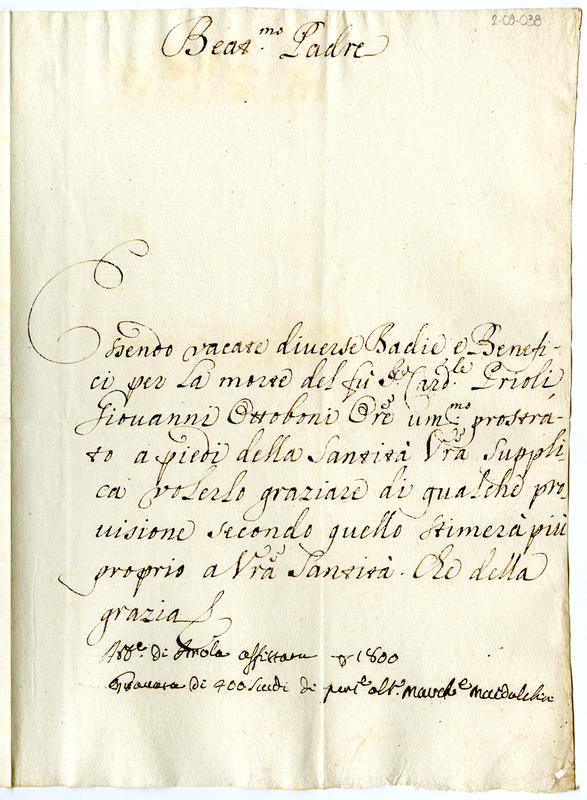 2-09-038
Beat.mo Padre
Essendo vacate diverse Badie e Benefi-
ci per la morte del fù Sr Card.le Prioli
Giovanni Ottoboni Ore um.mo prostra-
to a piedi della Santità Vra suppli
ca volerlo graziare di qualche pro
visione secondo quello stimerà più
proprio a Vra Santità. Che della
grazia
di affittata 1800
Gravata di 400 scudi di